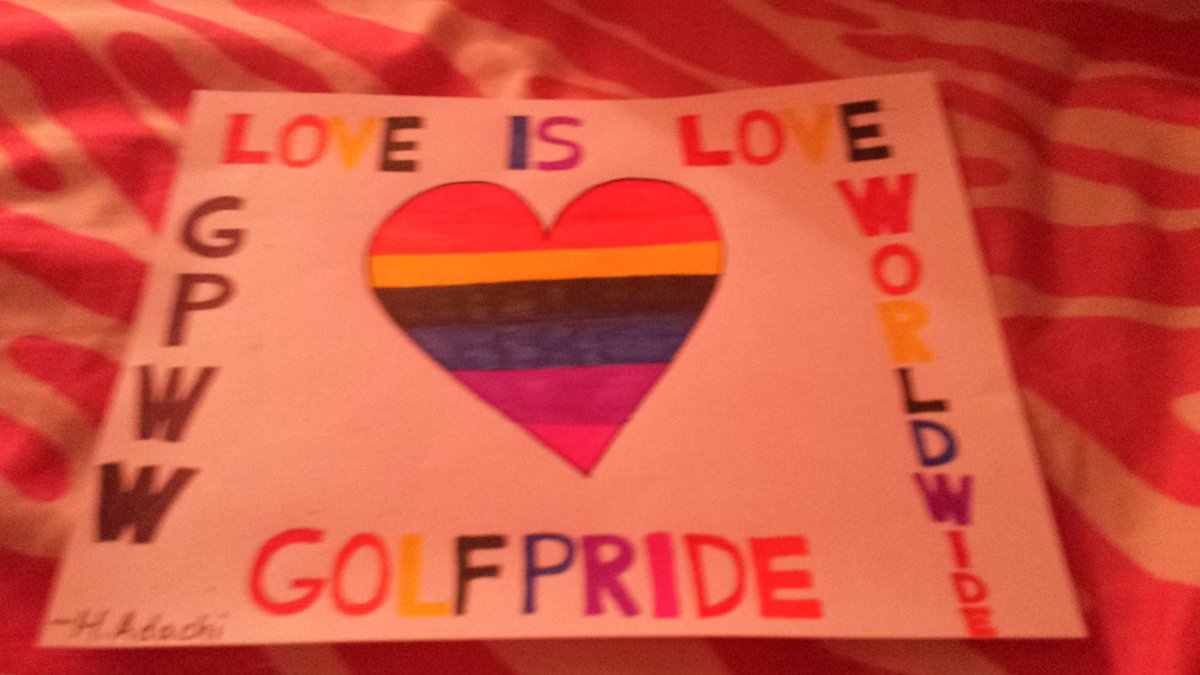 LOVE IS LOVE
GPWW
WORLDWIDE
GOLFPRIDE
~H.Adachi